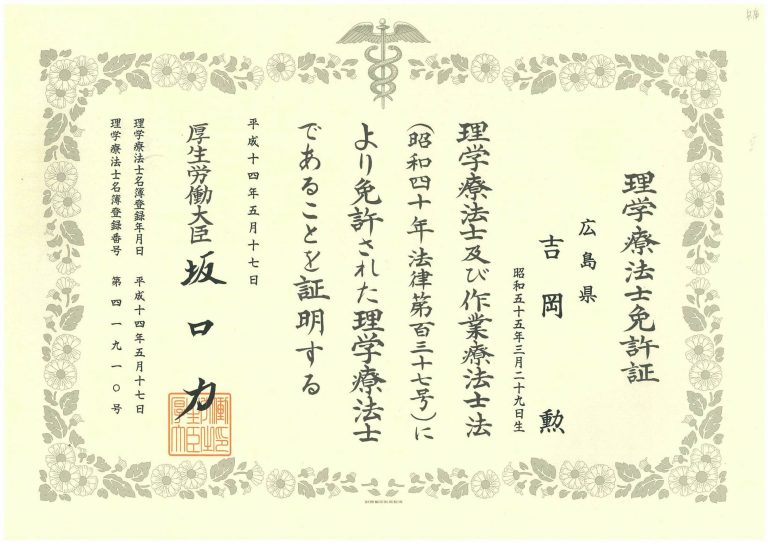 理学療法士免許証
広島県
吉岡勲
昭和五十五年三月二十九日生
理学療法士及び作業療法士法
(昭和四十年法律第百三十七号)に
より免許された理学療法士
であることを証明する
平成十四年五月十七日
厚生労働大臣 坂口力
理学療法士名簿登録年月日 平成十四年五月十七日
理学療法士名簿登録番号 第四一九一〇号